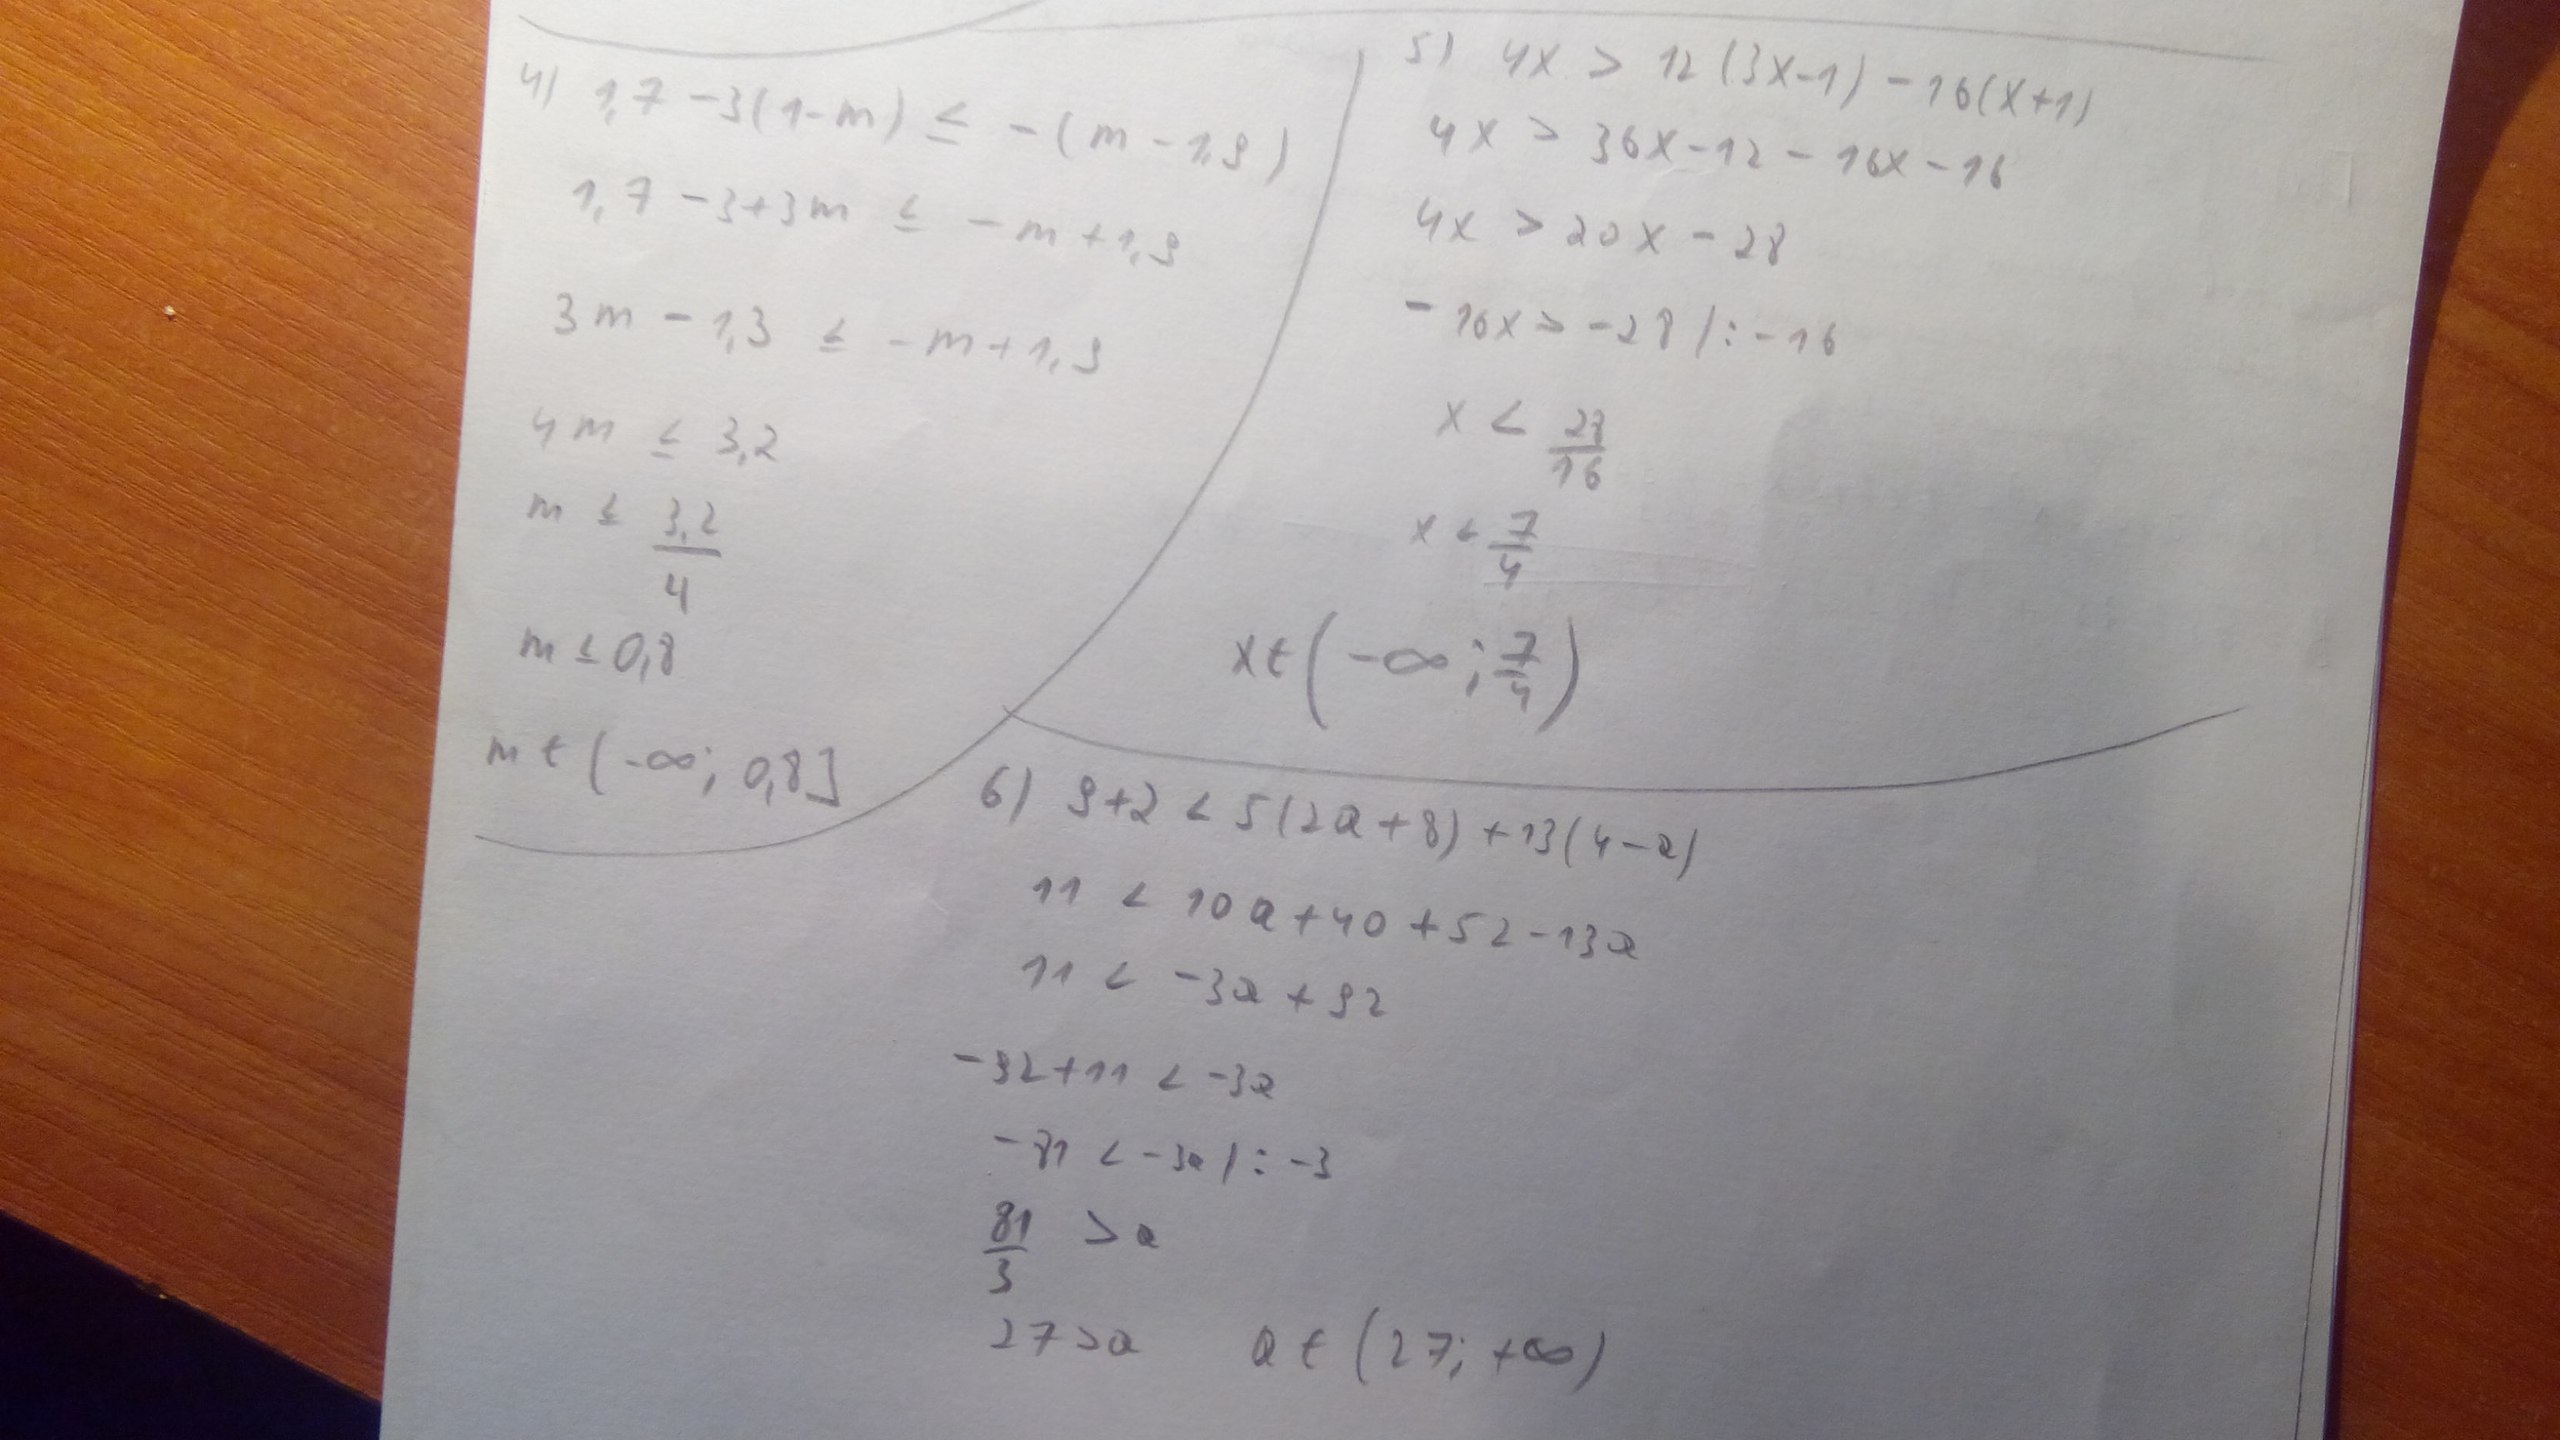 4) 1,7 - 3(1-m) ≤ -(m - 1,9)
1,7 - 3+3m ≤ -m+1,9
3m - 1,3 ≤ -m+1,9
4m ≤ 3,2
m ≤ 3,2/4
m ≤ 0,8
m ∈ (-∞; 0,8]
5) 4x > 12(3x-1) - 16(x+1)
4x > 36x-12 - 16x-16
4x > 20x - 28
-16x > -28 /: -16
x < 28/16
x < 7/4
x ∈ (-∞; 7/4)
6) 9+2 < 5(2a+8) +13(4-a)
11 < 10a+40 +52-13a
11 < -3a + 92
-92+11 < -3a
-81 < -3a /: -3
81/3 > a
27>a a ∈ (27; +∞)